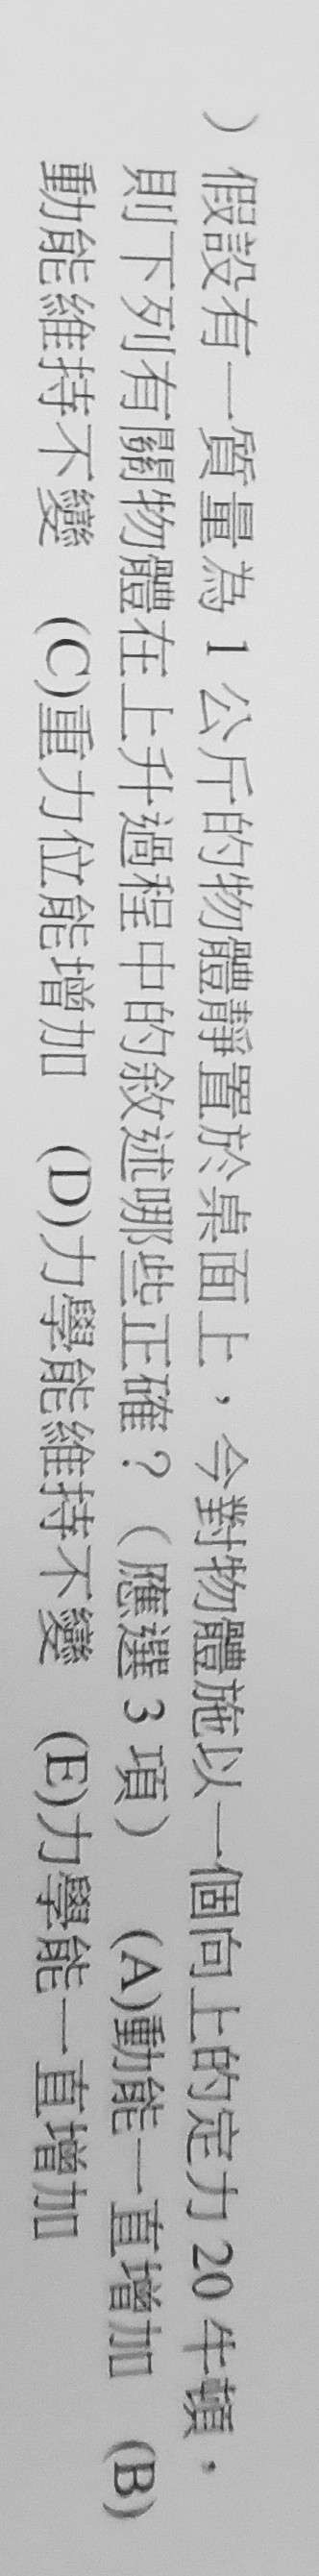 )假設有一質量為 1 公斤的物體靜置於桌面上，今對物體施以一個向上的定力 20 牛頓，
則下列有關物體在上升過程中的敘述哪些正確？（應選 3 項） (A)動能一直增加 (B)
動能維持不變 (C)重力位能增加 (D)力學能維持不變 (E)力學能一直增加